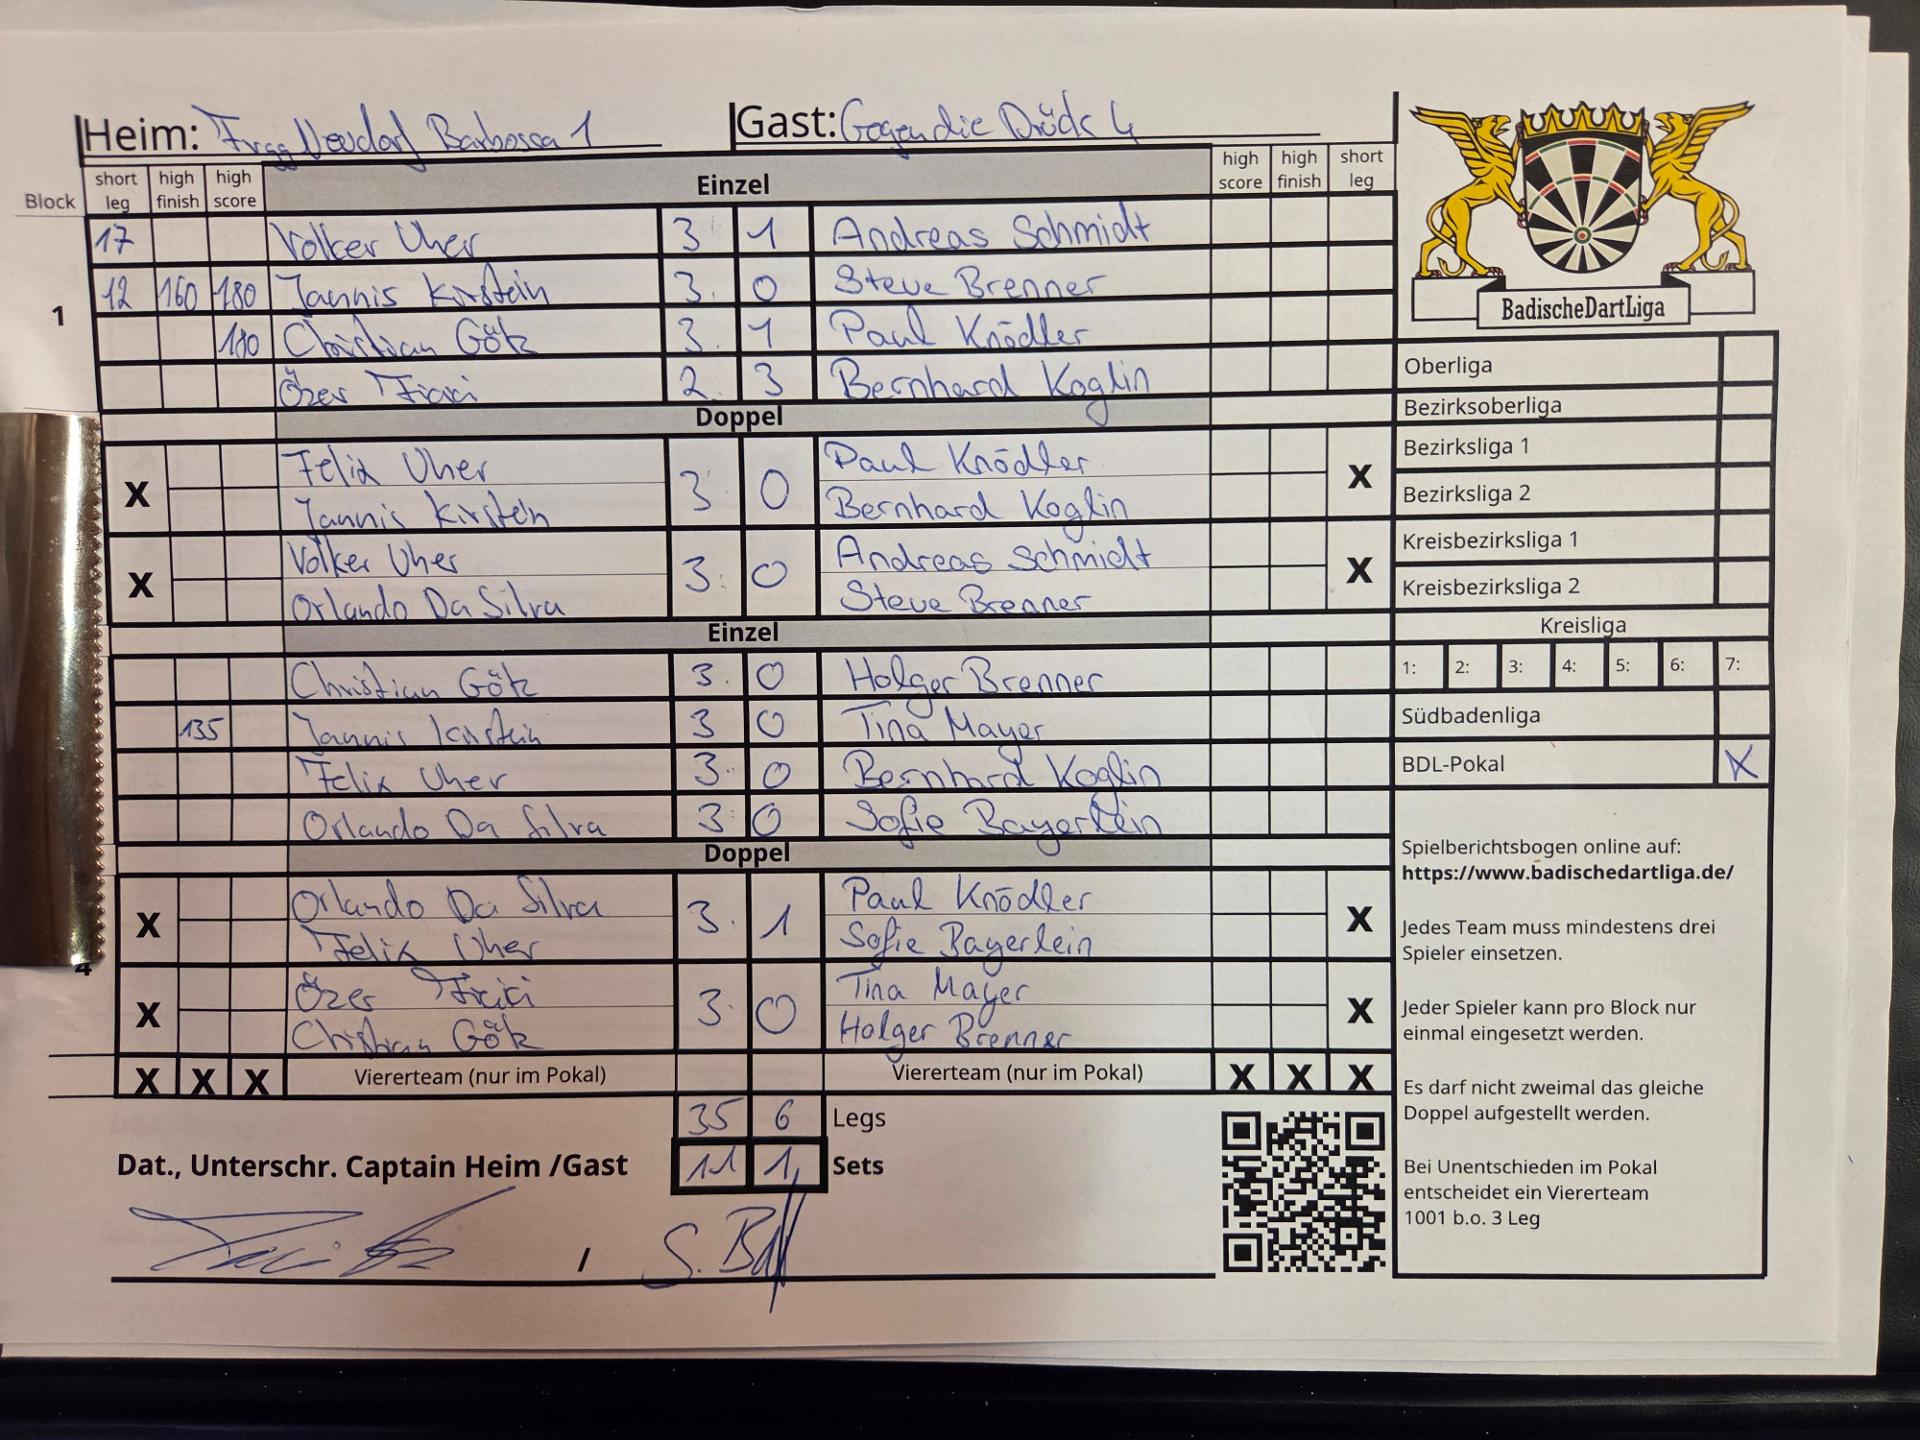 Heim: Frgg Neudorf Barbossa 1 Gast: Gegen die Dräds 4
Block short leg high finish high score Einzel high score high finish short leg
17 Volker Uher 3 1 Andreas Schmidt
1 12 160 180 Jannis Kirstein 3. 0 Steve Brenner
180 Christian Götz 3. 1 Paul Knödler
Özer 2. 3 Bernhard Koglin
Doppel
X Felix Uher 3 0 Paul Knödler X
Jannis Kirstein Bernhard Koglin
X Volker Uher 3: 0 Andreas Schmidt X
Orlando Da Silva Steve Brenner
Einzel
Christian Götz 3. 0 Holger Brenner
135 Jannis Kirstein 3 0 Tina Mayer
Felix Uher 3. 0 Bernhard Koglin
Orlando Da Silva 3 0 Sofie Bayerlein
Doppel
X Orlando Da Silva 3. 1 Paul Knödler X
Felix Uher Sofie Bayerlein
4
X Özer 3. 0 Tina Mayer X
Christian Götz Holger Brenner
X X X Viererteam (nur im Pokal) Viererteam (nur im Pokal) X X X
35 6 Legs
Dat., Unterschr. Captain Heim /Gast 11 1 Sets
/
BadischeDartLiga
Oberliga
Bezirksoberliga
Bezirksliga 1
Bezirksliga 2
Kreisbezirksliga 1
Kreisbezirksliga 2
Kreisliga
1: 2: 3: 4: 5: 6: 7:
Südbadenliga
BDL-Pokal X
Spielberichtsbogen online auf:
https://www.badischedartliga.de/
Jedes Team muss mindestens drei
Spieler einsetzen.
Jeder Spieler kann pro Block nur
einmal eingesetzt werden.
Es darf nicht zweimal das gleiche
Doppel aufgestellt werden.
Bei Unentschieden im Pokal
entscheidet ein Viererteam
1001 b.o. 3 Leg